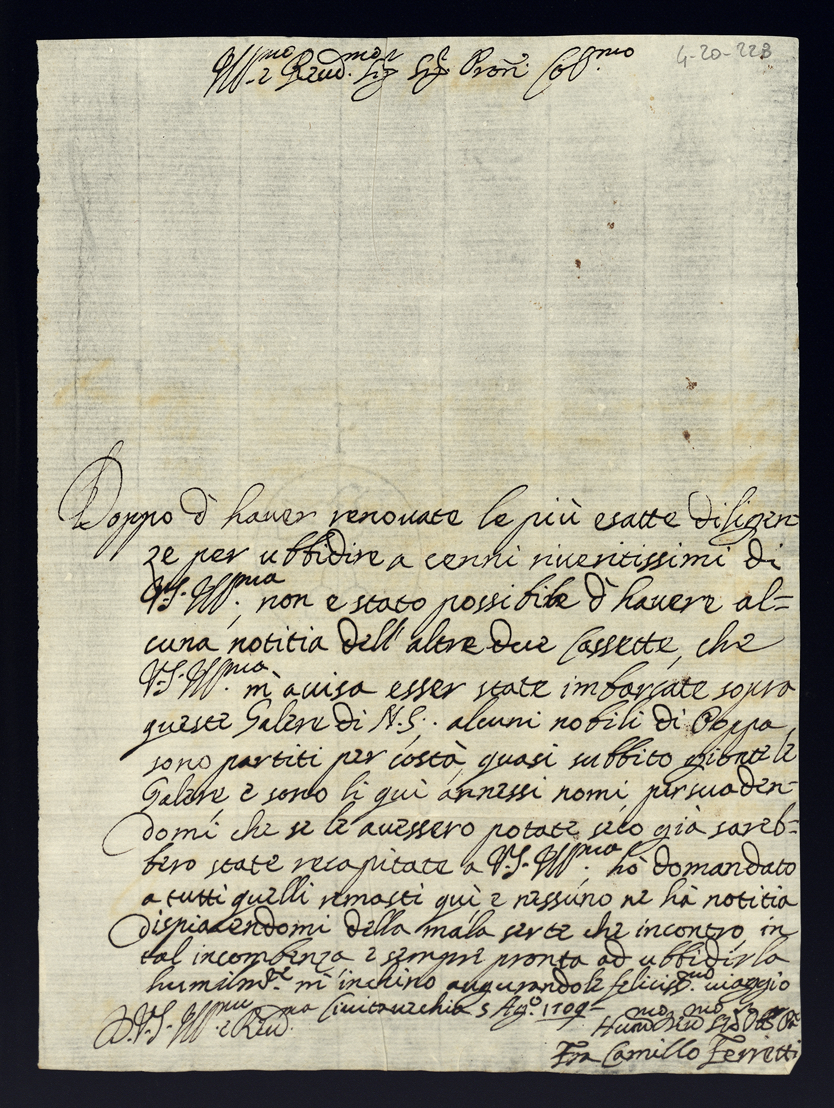 Ill.mo e Reud.mo Sig.r Sig.r Pron Col.mo
4-20-223
Doppo d hauer renouate le più esatte diligen-
ze per ubbidire a cenni riueritissimi di
V.S. Ill.ma, non e stato possibile d hauere al=
cuna notitia dell'altre due Cassette, che
V.S. Ill.ma m'auisa esser state imbarcate sopra
queste Galere di N.S.. alcuni nobili di Poppa
sono partiti per costà quasi subbito gionte le
Galere e sono li qui annessi nomi persuaden-
domi che se le auessero potate seco già sareb=
bero state recapitate a V.S. Ill.ma hò domandato
a tutti quelli remasti quì e nessuno ne hà notitia
dispiacendomi della mala sorte che incontro in
tal incombenza e sempre pronto ad ubbidirla
humilm.te m'inchino augurandole feliciss.mo uiaggio
D.V.S. Ill.ma e Reu.ma Ciuitauechia 5 Ag.o 1709
Fra Camillo Ferretti